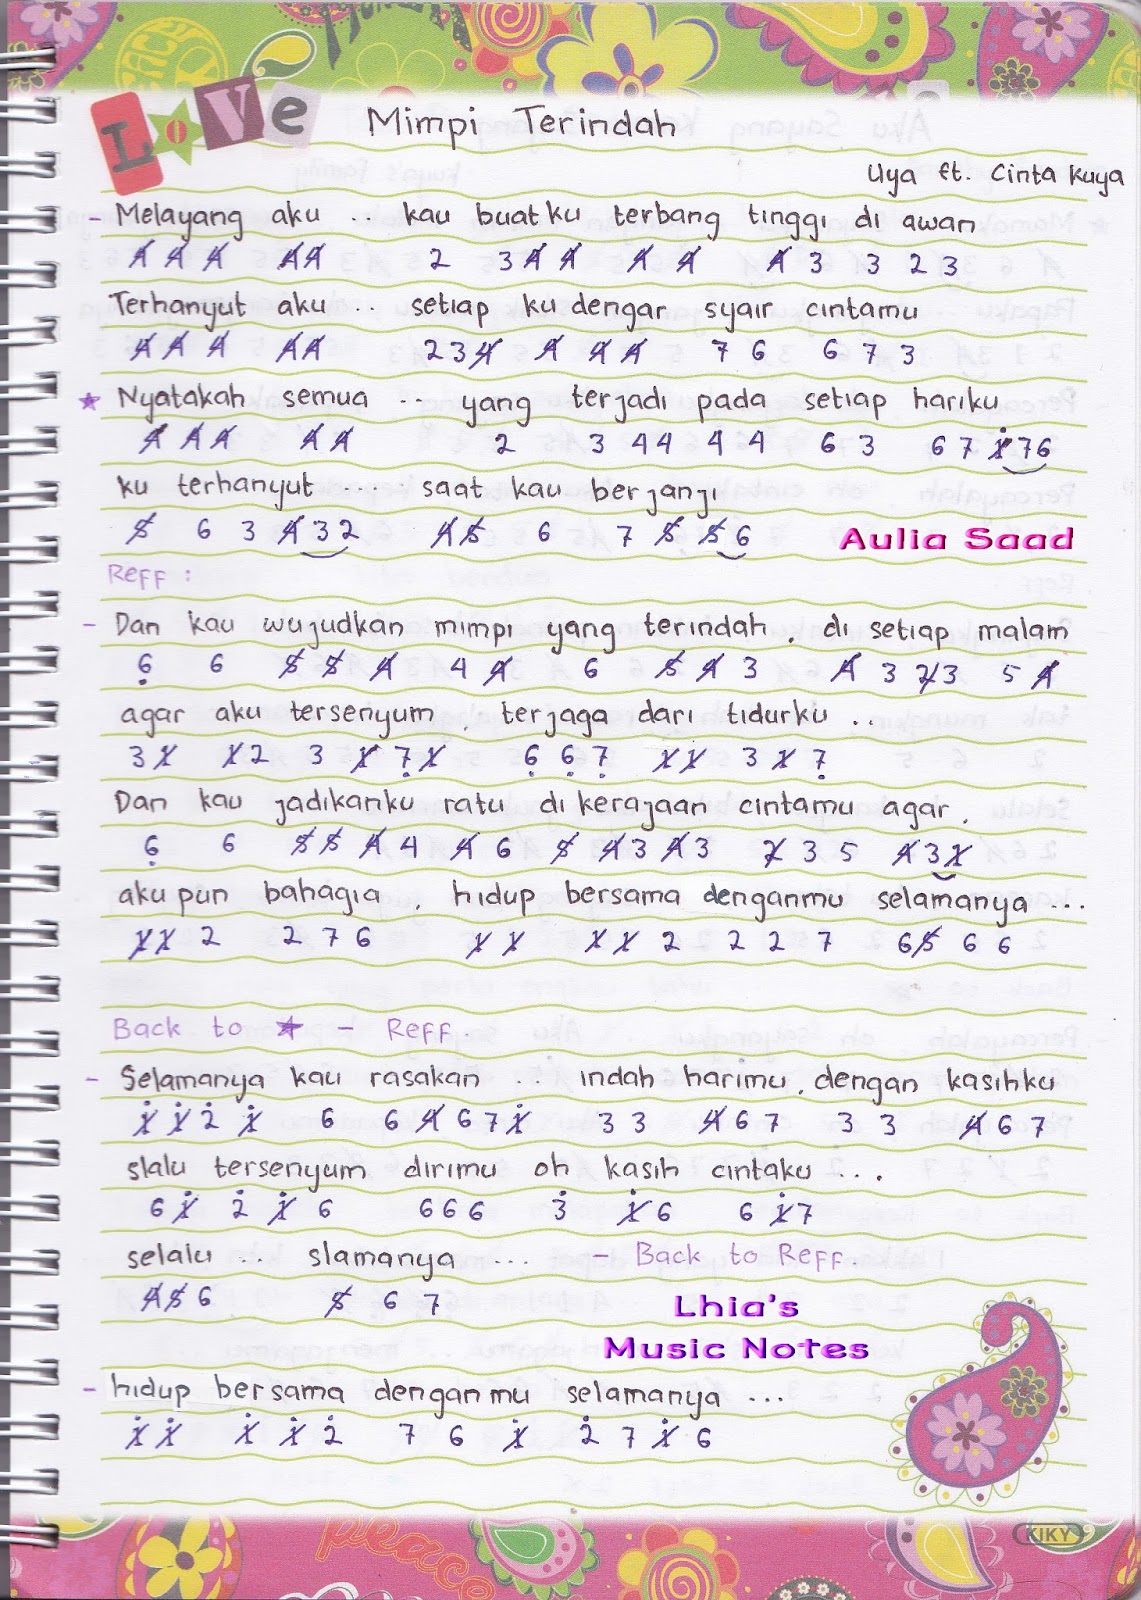 LOVE
Mimpi Terindah
Uya ft. Cinta Kuya
- Melayang aku .. kau buatku terbang tinggi di awan
4̸ 4̸ 4̸ 4̸4̸ 2 3 4̸ 4̸ 4̸ 4̸ 4̸ 3 3 2 3
Terhanyut aku .. setiap ku dengar syair cintamu
4̸ 4̸ 4̸ 4̸4̸ 2 3 4̸ 4̸ 4̸ 4̸ 7 6 6 7 3
★ Nyatakah semua .. yang terjadi pada setiap hariku
4̸ 4̸ 4̸ 4̸ 4̸ 2 3 4 4 4 4 6 3 6 7 1̸̇ 7 6
ku terhanyut .... saat kau berjanji
5̸ 6 3 4̸ 3 2 4̸ 5̸ 6 7 5̸ 5̸ 6
Aulia Saad
Reff :
- Dan kau wujudkan mimpi yang terindah, di setiap malam
6̣ 6 5̸ 5̸ 4̸ 4 4̸ 6 5̸ 4̸ 3 4̸ 3 2̸ 3 5 4̸
agar aku tersenyum, terjaga dari tidurku ..
3 1̸ 1̸ 2 3 1̸ 7̣ 1̸ 6̣ 6̣ 7̣ 1̸ 1̸ 3 1̸ 7̣
Dan kau jadikanku ratu di kerajaan cintamu agar,
6̣ 6 5̸ 5̸ 4̸ 4 4̸ 6 5̸ 4̸ 3 4̸ 3 2̸ 3 5 4̸ 3 1̸
aku pun bahagia, hidup bersama denganmu selamanya ...
1̸ 1̸ 2 2 7 6 1̸ 1̸ 1̸ 1̸ 2 2 2 7 6 5̸ 6 6
Back to ★ - Reff.
- Selamanya kau rasakan .. indah harimu, dengan kasihku
1̸̇ 1̸̇ 2̇ 1̸̇ 6 6 4̸ 6 7 1̸̇ 3 3 4̸ 6 7 3 3 4̸ 6 7
slalu tersenyum dirimu oh kasih cintaku ...
6 1̸̇ 2̇ 1̸̇ 6 6 6 6 3̇ 1̸̇ 6 6 1̸̇ 7
selalu .. slamanya ... - Back to Reff.
4̸ 5̸ 6 5̸ 6 7
Lhia's
Music Notes
- hidup bersama denganmu selamanya ...
1̸̇ 1̸̇ 1̸̇ 1̸̇ 2̇ 7 6 1̸̇ 2̇ 7 1̸̇ 6
peace
KIKY